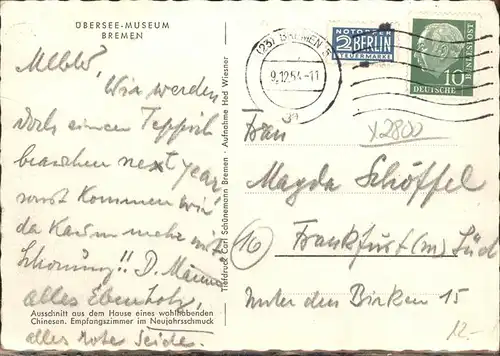 ÜBERSEE-MUSEUM
BREMEN
Wir werden
doch einen Teppich
brauchen next year,
sonst kommen wir
da kaum mehr mit
Schonung!! D. Männer
alles Ebenholz,
Ausschnitt aus dem Hause eines wohlhabenden
Chinesen. Empfangszimmer im Neujahrsschmuck
alles rote Seide.
Tiefdruck Carl Schünemann Bremen - Aufnahme Hed Wiesner
(23) BREMEN 5
9.12.54.-11
NOTOPFER
2 BERLIN
STEUERMARKE
10
DEUTSCHE
BUNDESPOST
Frau
x2800
Magda Schöffel
16 Frankfurt (M) Süd
Unter den Birken 15
12.-